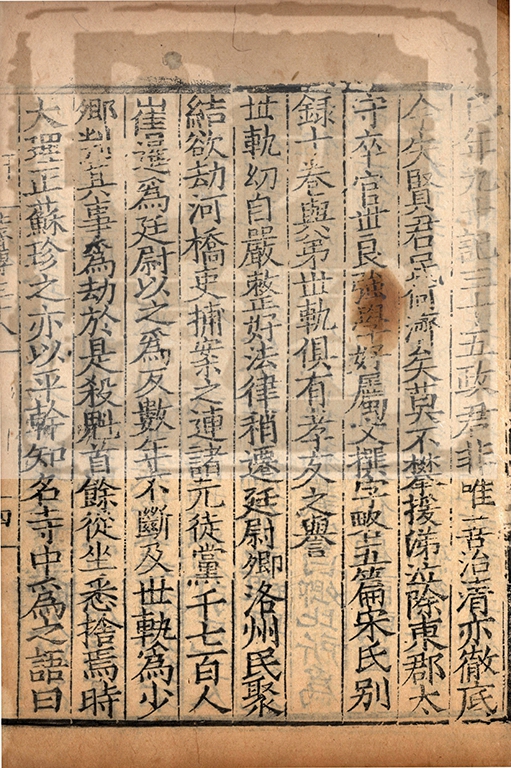 年九十記三十五政君非唯善治清亦徹底
今失賢君民何濟矣莫不攀援涕泣除東郡太
守卒官世良強學好屬文撰字略五篇宋氏別
錄十卷與弟世軌俱有孝友之譽
世軌幼自嚴整好法律稍遷廷尉卿洛州民聚
結欲劫河橋吏捕案之連諸元徒黨千七百人
崔暹為廷尉以之為反數年不斷及世軌為少
卿判其事為劫於是殺魁首餘從坐悉捨焉時
大理正蘇珍之亦以平幹知名寺中為之語曰